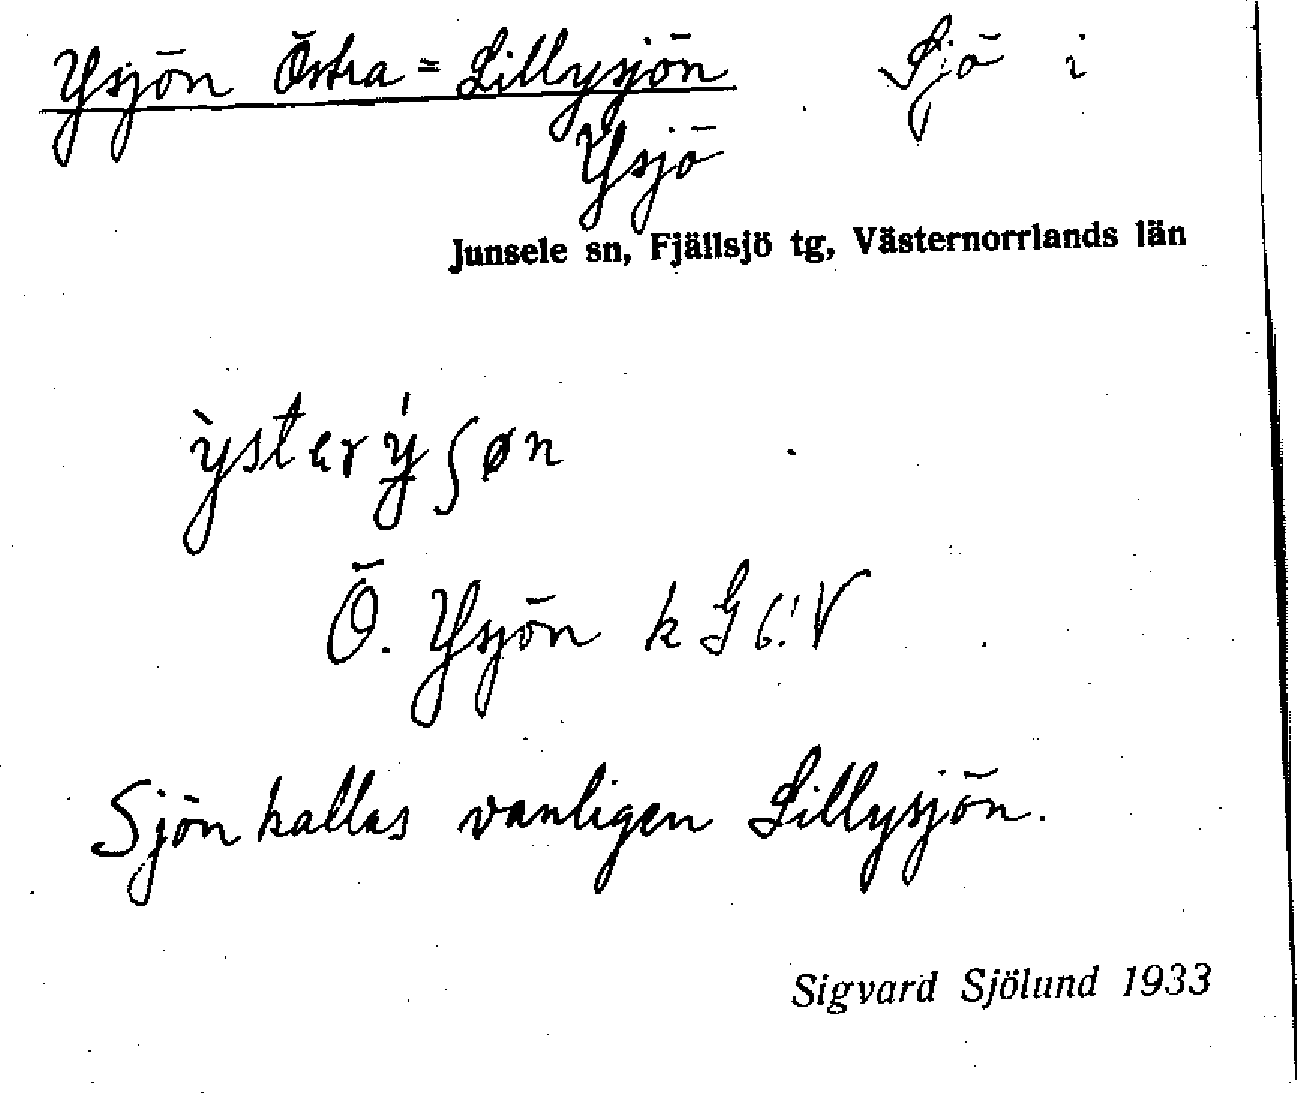 Ysjön Östra = Lillysjön Sjö i
Ysjö
Junsele sn, Fjällsjö tg, Västernorrlands län
ỳstɛrýʃøn
Ö. Ysjön k G 6! V
Sjön kallas vanligen Lillysjön.
Sigvard Sjölund 1933